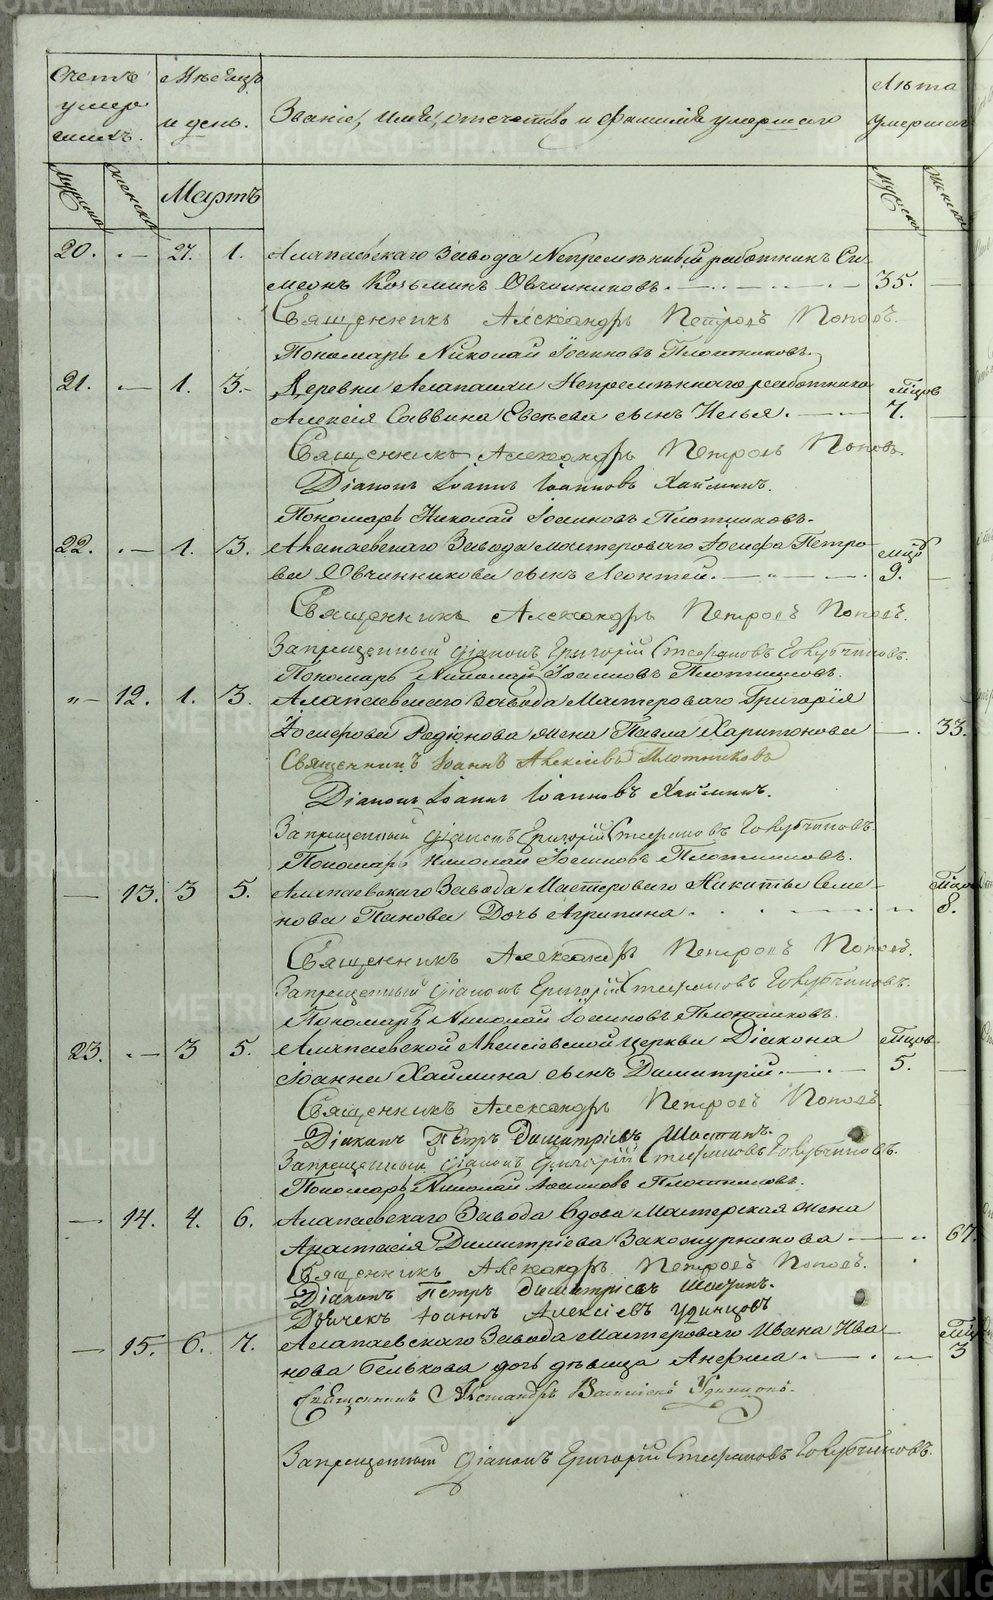 Счетъ умершихъ.
Мѣсяцъ и день.
Званіе, имя, отчество и фамилія умершаго
Лѣта умершаго
Мужеска
Женска
Мартъ
Мужеска
Женска
20. 27. 1. Алапаевскаго Завода Непремѣнный работникъ Си-
меонъ Козьминъ Овчинниковъ. 35.
Священникъ Александръ Петровъ Поповъ.
Пономарь Николай Іоанновъ Плотниковъ.
21. 1. 3. Деревни Алапаихи Непремѣннаго работника
Алексія Саввина Евсѣева сынъ Илья. мѣсяцов 7.
Священникъ Александръ Петровъ Поповъ.
Діаконъ Іоаннъ Іоанновъ Хайминъ.
Пономарь Николай Іоанновъ Плотниковъ.
22. 1. 3. Алапаевскаго Завода мастероваго Іосифа Петро-
ва Овчинникова сынъ Леонтей. 9.
Священникъ Александръ Петровъ Поповъ.
Запрещенный діаконъ Григорій Стефановъ Голубчиковъ.
Пономарь Николай Іоанновъ Плотниковъ.
12. 1. 3. Алапаевскаго Завода Мастероваго Григорія
Іосифова Редіонова жена Павла Харитонова 33.
Священникъ Іоаннъ Алексіевъ Плотниковъ
Діаконъ Іоаннъ Іоанновъ Хайминъ.
Запрещенный діаконъ Григорій Стефановъ Голубчиковъ.
Пономарь Николай Іоанновъ Плотниковъ.
13. 3 5. Алапаевскаго Завода Мастероваго Никиты Семе-
нова Панова Дочь Агрипина. 8.
Священникъ Александръ Петровъ Поповъ.
Запрещенный діаконъ Григорій Стефановъ Голубчиковъ.
Пономарь Николай Іоанновъ Плотниковъ.
23. 3 5. Алапаевской Алексіевской церкви Діакона
Іоанна Хаймина сынъ Димитрій. 5.
Священникъ Александръ Петровъ Поповъ.
Діаконъ Петръ Димитріевъ
Запрещенный діаконъ Григорій Стефановъ Голубчиковъ.
Пономарь Николай Іоанновъ Плотниковъ.
14. 4. 6. Алапаевскаго Завода Вдова Мастерская жена
Анастасія Димитріева Закожурникова 67.
Священникъ Александръ Петровъ Поповъ.
Діаконъ Петръ Димитріевъ
Дьячекъ Іоаннъ Алексіевъ Удинцовъ
15. 6. 7. Алапаевскаго Завода Мастероваго Ивана Ива-
нова Гелькова дочь дѣвица Анфиса. 3
Священникъ Александръ Васильевъ Удинцовъ.
Запрещенный діаконъ Григорій Стефановъ Голубчиковъ.
METRIKI.GASO-URAL.RU